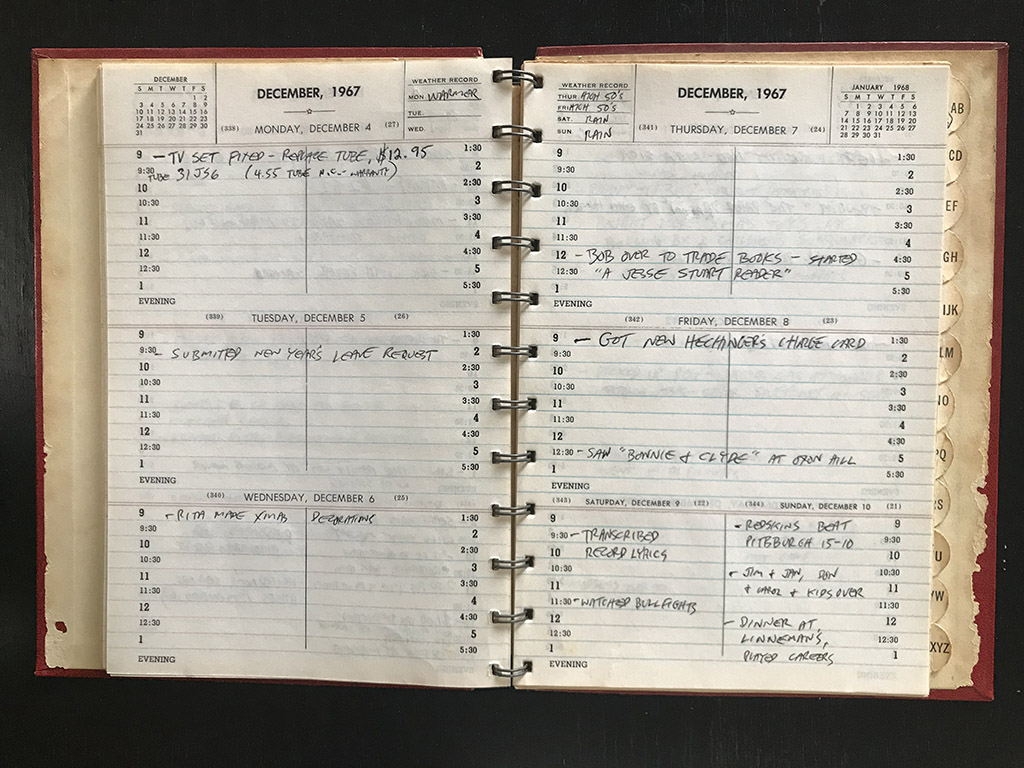 DECEMBER
S M T W T F S
1 2
3 4 5 6 7 8 9
10 11 12 13 14 15 16
17 18 19 20 21 22 23
24 25 26 27 28 29 30
31
DECEMBER, 1967
WEATHER RECORD
MON WARMER
TUE.
WED.
(338) MONDAY, DECEMBER 4 (27)
9 - TV SET FIXED - REPLACE TUBE, $12.95 1:30
9:30 TUBE 31JS6 (4.55 TUBE N.C. - WARRANTY) 2
10 2:30
10:30 3
11 3:30
11:30 4
12 4:30
12:30 5
1 5:30
EVENING
(339) TUESDAY, DECEMBER 5 (26)
9 1:30
9:30 - SUBMITTED NEW YEAR'S LEAVE REQUEST 2
10 2:30
10:30 3
11 3:30
11:30 4
12 4:30
12:30 5
1 5:30
EVENING
(340) WEDNESDAY, DECEMBER 6 (25)
9 - RITA MADE XMAS DECORATIONS 1:30
9:30 2
10 2:30
10:30 3
11 3:30
11:30 4
12 4:30
12:30 5
1 5:30
EVENING
WEATHER RECORD
THUR HIGH 50'S
FRI HIGH 50'S
SAT. RAIN
SUN RAIN
DECEMBER, 1967
JANUARY 1968
S M T W T F S
1 2 3 4 5 6
7 8 9 10 11 12 13
14 15 16 17 18 19 20
21 22 23 24 25 26 27
28 29 30 31
(341) THURSDAY, DECEMBER 7 (24)
9 1:30
9:30 2
10 2:30
10:30 3
11 3:30
11:30 4
12 - BOB OVER TO TRADE BOOKS - STARTED 4:30
12:30 "A JESSE STUART READER" 5
1 5:30
EVENING
(342) FRIDAY, DECEMBER 8 (23)
9 - GOT NEW HECHINGERS CHARGE CARD 1:30
9:30 2
10 2:30
10:30 3
11 3:30
11:30 4
12 4:30
12:30 - SAW "BONNIE & CLYDE" AT OXON HILL 5
1 5:30
EVENING
(343) SATURDAY, DECEMBER 9 (22) (344) SUNDAY, DECEMBER 10 (21)
9 - REDSKINS BEAT 9
9:30 - TRANSCRIBED PITTSBURGH 15-10 9:30
10 RECORD LYRICS 10
10:30 - JIM & JAN, DON 10:30
11 & CAROL & KIDS OVER 11
11:30 - WATCHED BULLFIGHTS 11:30
12 - DINNER AT 12
12:30 LINNEMAN'S, 12:30
1 PLAYED CAREERS 1
EVENING
AB
CD
EF
GH
IJK
LM
NO
PQ
RS
U
VW
XYZ